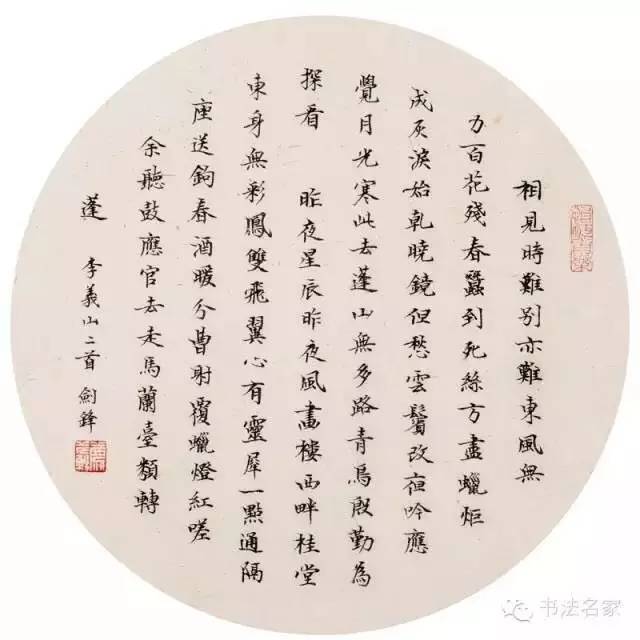 相見時難別亦難東風無
力百花殘春蠶到死絲方盡蠟炬
成灰淚始乾曉鏡但愁雲鬢改夜吟應
覺月光寒此去蓬山無多路青鳥殷勤為
探看 昨夜星辰昨夜風畫樓西畔桂堂
東身無彩鳳雙飛翼心有靈犀一點通隔
座送鉤春酒暖分曹射覆蠟燈紅嗟
余聽鼓應官去走馬蘭臺類轉
蓬 李義山二首 劍鋒
书法名家